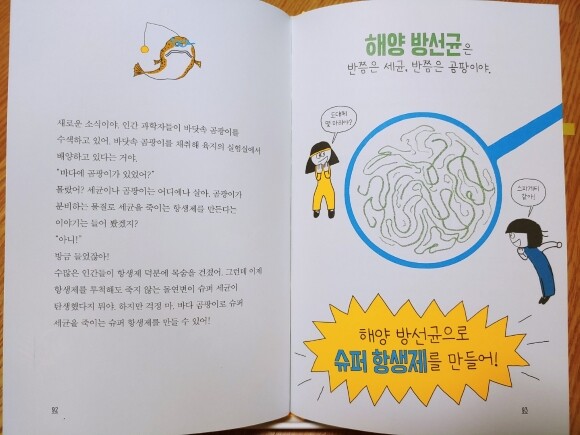 새로운 소식이야. 인간 과학자들이 바닷속 곰팡이를
수색하고 있어. 바닷속 곰팡이를 채취해 육지의 실험실에서
배양하고 있다는 거야.
“바다에 곰팡이가 있었어?”
몰랐어? 세균이나 곰팡이는 어디에나 살아. 곰팡이가
분비하는 물질로 세균을 죽이는 항생제를 만든다는
이야기는 들어 봤겠지?
“아니!”
방금 들었잖아!
수많은 인간들이 항생제 덕분에 목숨을 건졌어. 그런데 이제
항생제를 투척해도 죽지 않는 돌연변이 슈퍼 세균이
탄생했다지 뭐야. 하지만 걱정 마. 바다 곰팡이로 슈퍼
세균을 죽이는 슈퍼 항생제를 만들 수 있어!
해양 방선균은
반쯤은 세균, 반쯤은 곰팡이야.
도대체
몇 마리야?
스파게티
같아!
해양 방선균으로
슈퍼 항생제를 만들어!